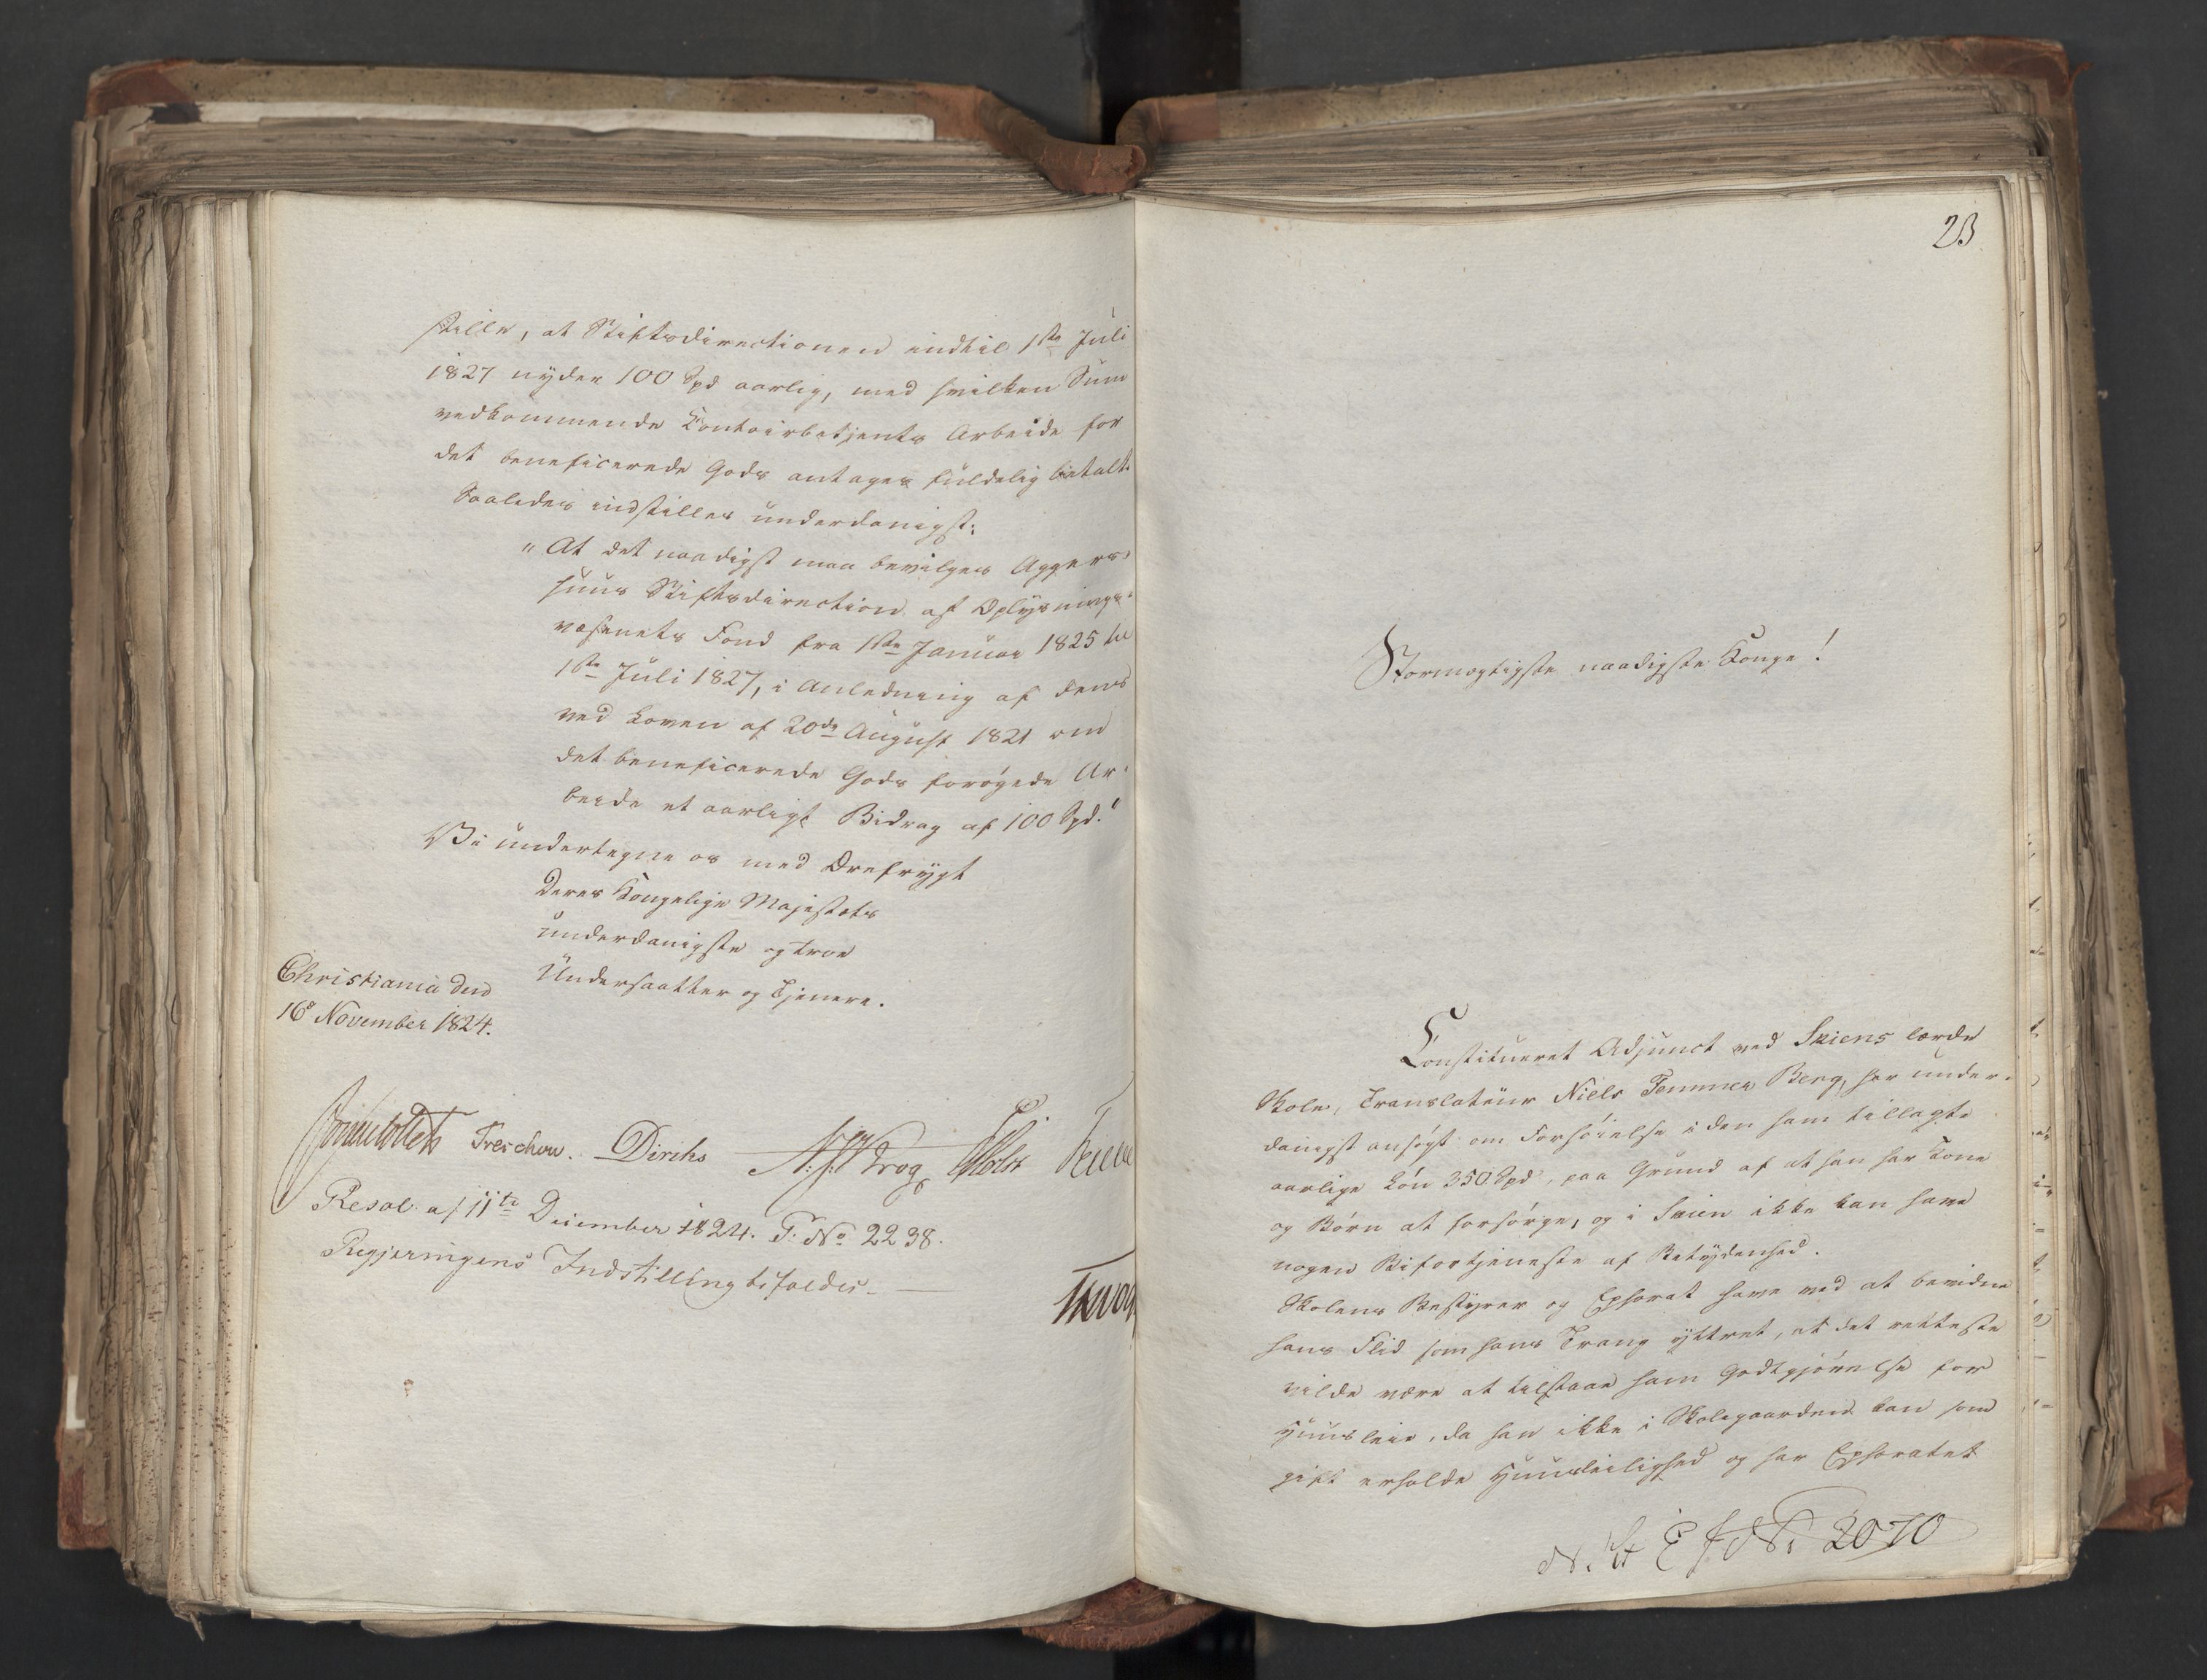 stille, at Stiftsdirectionen indtil 1ste Juli
1827 nyder 100 Spd aarlig, med hvilken Sum
vedkommende Contoirbetjents Arbeide for
det beneficerede Gods antages fuldelig betalt.
Saaledes indstilles underdanigst:
"At det naadigst maa bevilges Aggers-
huus Stiftsdirection af Oplysnings-
væsenets Fond fra 1ste Januar 1825 til
1ste Juli 1827, i Anledning af dens
ved Loven af 20de August 1821 om
det beneficerede Gods forøgede Ar-
beide et aarligt Bidrag af 100 Spd."
Vi undertegne os med Ærefrygt
Deres Kongelige Majestæts
underdanigste og troe
Undersaatter og Tjenere.
Christiania den
16 November 1824.
Treschow. Diriks Krog Holst
Resol. af 11te December 1824. P. No 2238.
Regjeringens Indstilling bifaldes.
23
Stormægtigste naadigste Konge!
Constitueret Adjunct ved Skiens lærde
Skole, Translateur Niels Temmer Berg, har under-
danigst ansøgt om Forhøielse i den ham tillagte
aarlige Løn 350 Spd, paa Grund af at han har Kone
og Børn at forsørge, og i Skien ikke kan have
nogen Bifortjeneste af Betydenhed.
Skolens Bestyrer og Ephorat have ved at bevidne
hans Flid som hans Trang yttret, at det retteste
vilde være at tilstaae ham Godtgjørelse for
Huusleie, da han ikke i Skolegaarden kan som
gift erholde Huusleilighed og har Ephoratet
No 2070